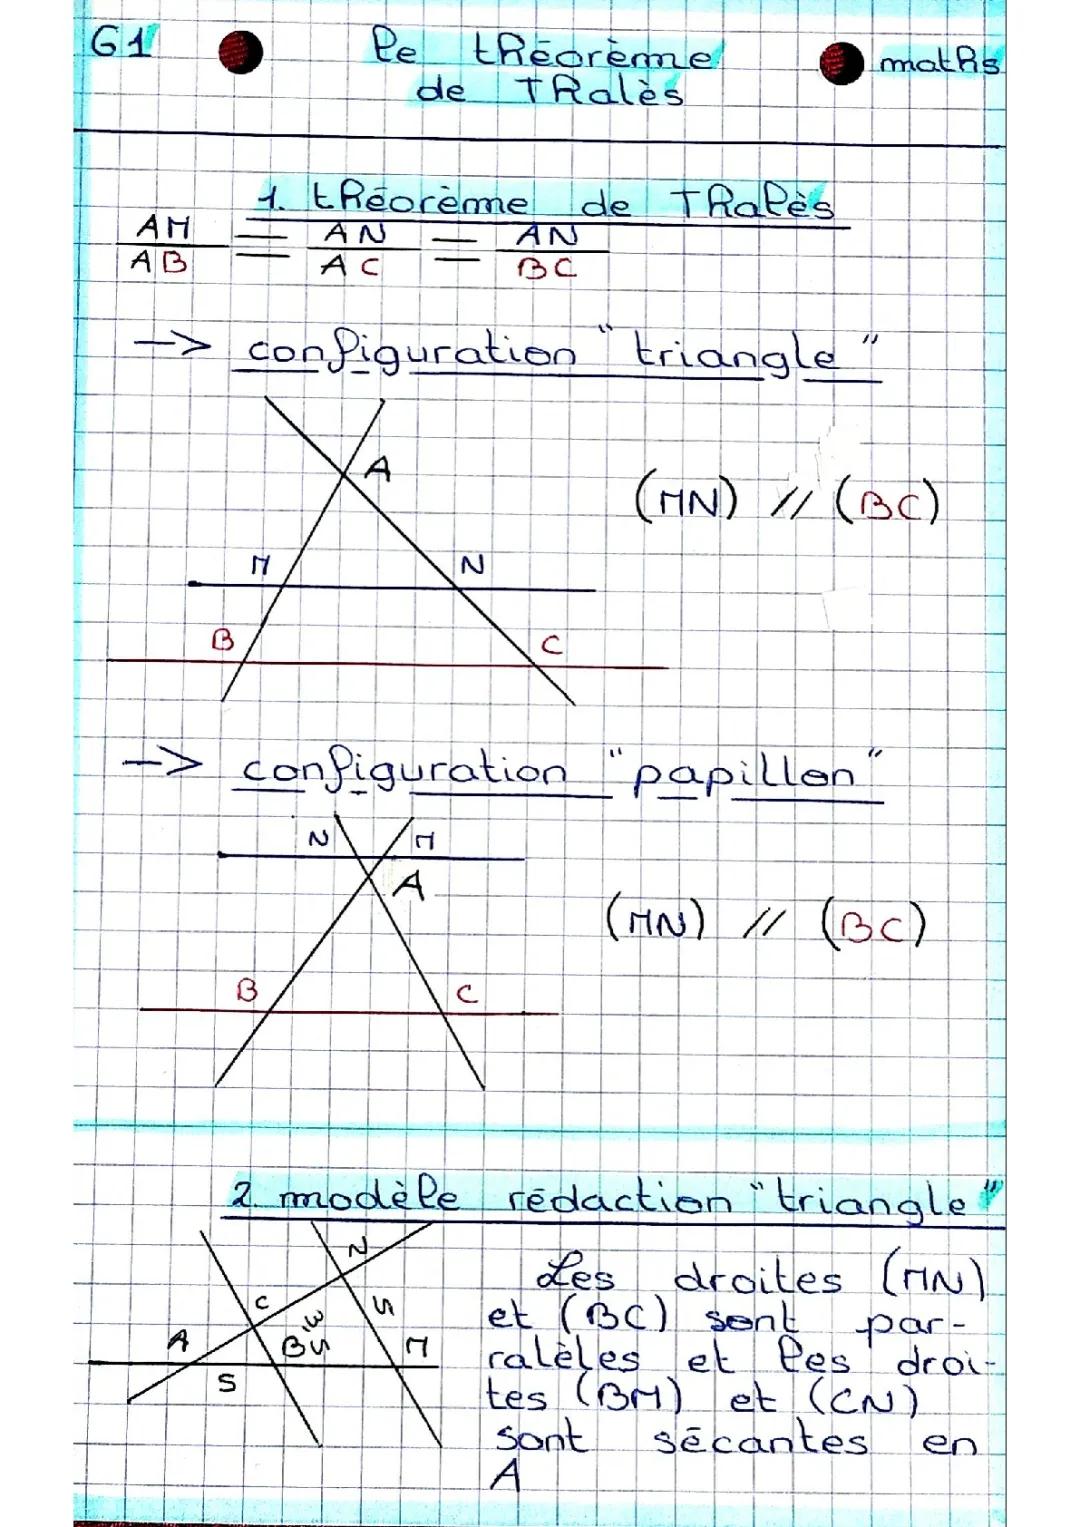 G1 le théorème maths
de Thalès
1. théorème de Thalès
AM/AB = AN/AC = AN/BC
-> configuration "triangle"
A
(MN) // (BC)
M N
B C
-> configuration "papillon"
N M
A
(MN) // (BC)
B C
2. modèle rédaction "triangle"
N
Les droites (MN)
C S
et (BC) sont par-
A B M
ralèles et les droi-
S
tes (BM) et (CN)
sont sécantes en
A